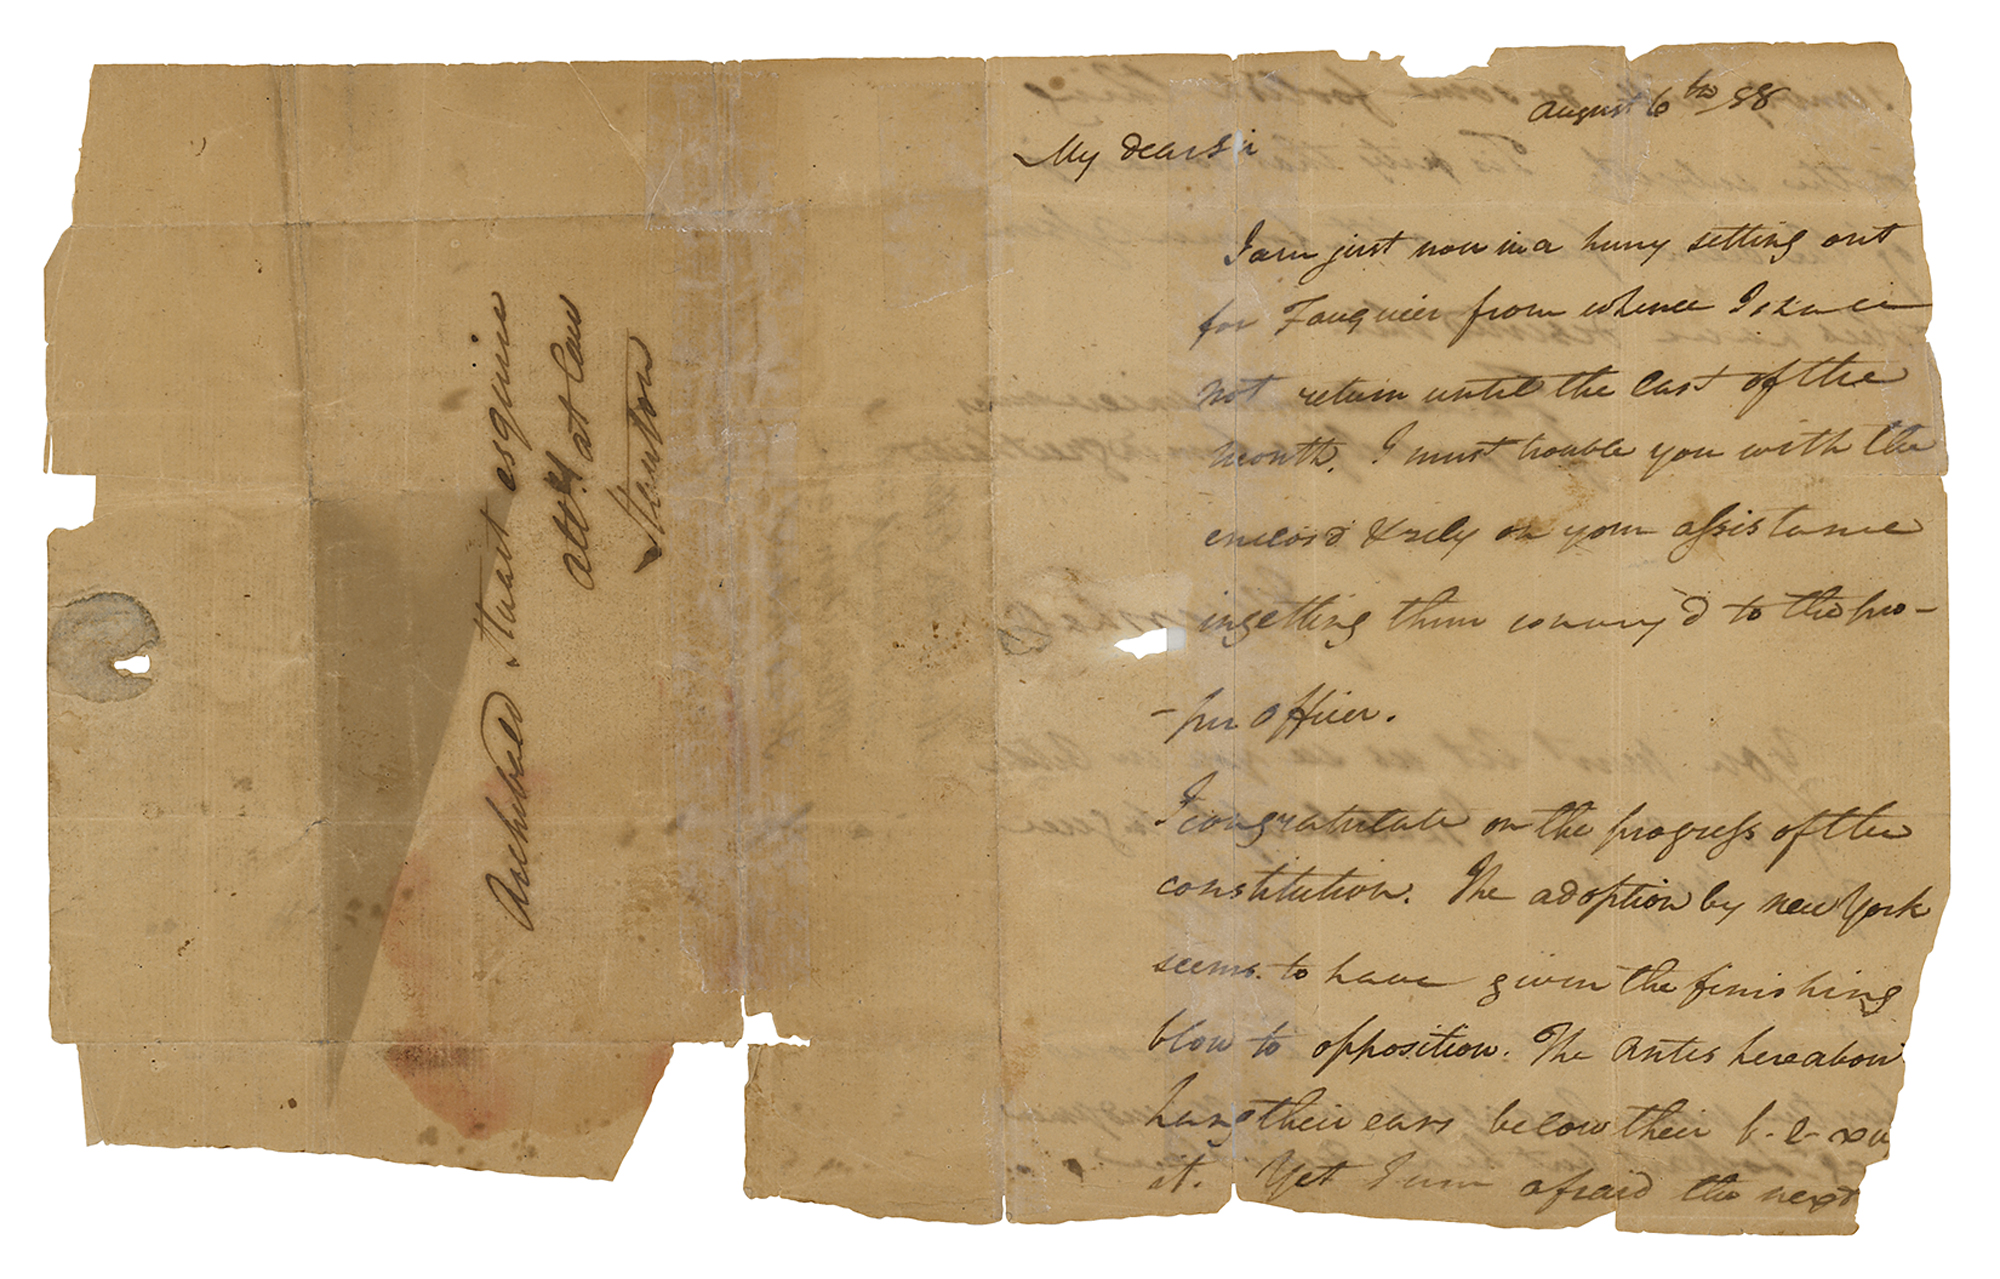 Archibald Stuart esquire
atto.y at Law
Staunton
August 6th 88
My dear Sir
I am just now in a hurry setting out
for Fauquier from whence I shall
not return until the last of the
month. I must trouble you with the
enclosd & rely on your assistance
in getting them convey'd to the pro-
-per officer.
I congratulate on the progress of the
constitution. The adoption by New York
seems to have given the finishing
blow to opposition. The Antis hereabout
hang their ears below their
it. Yet I am afraid the next